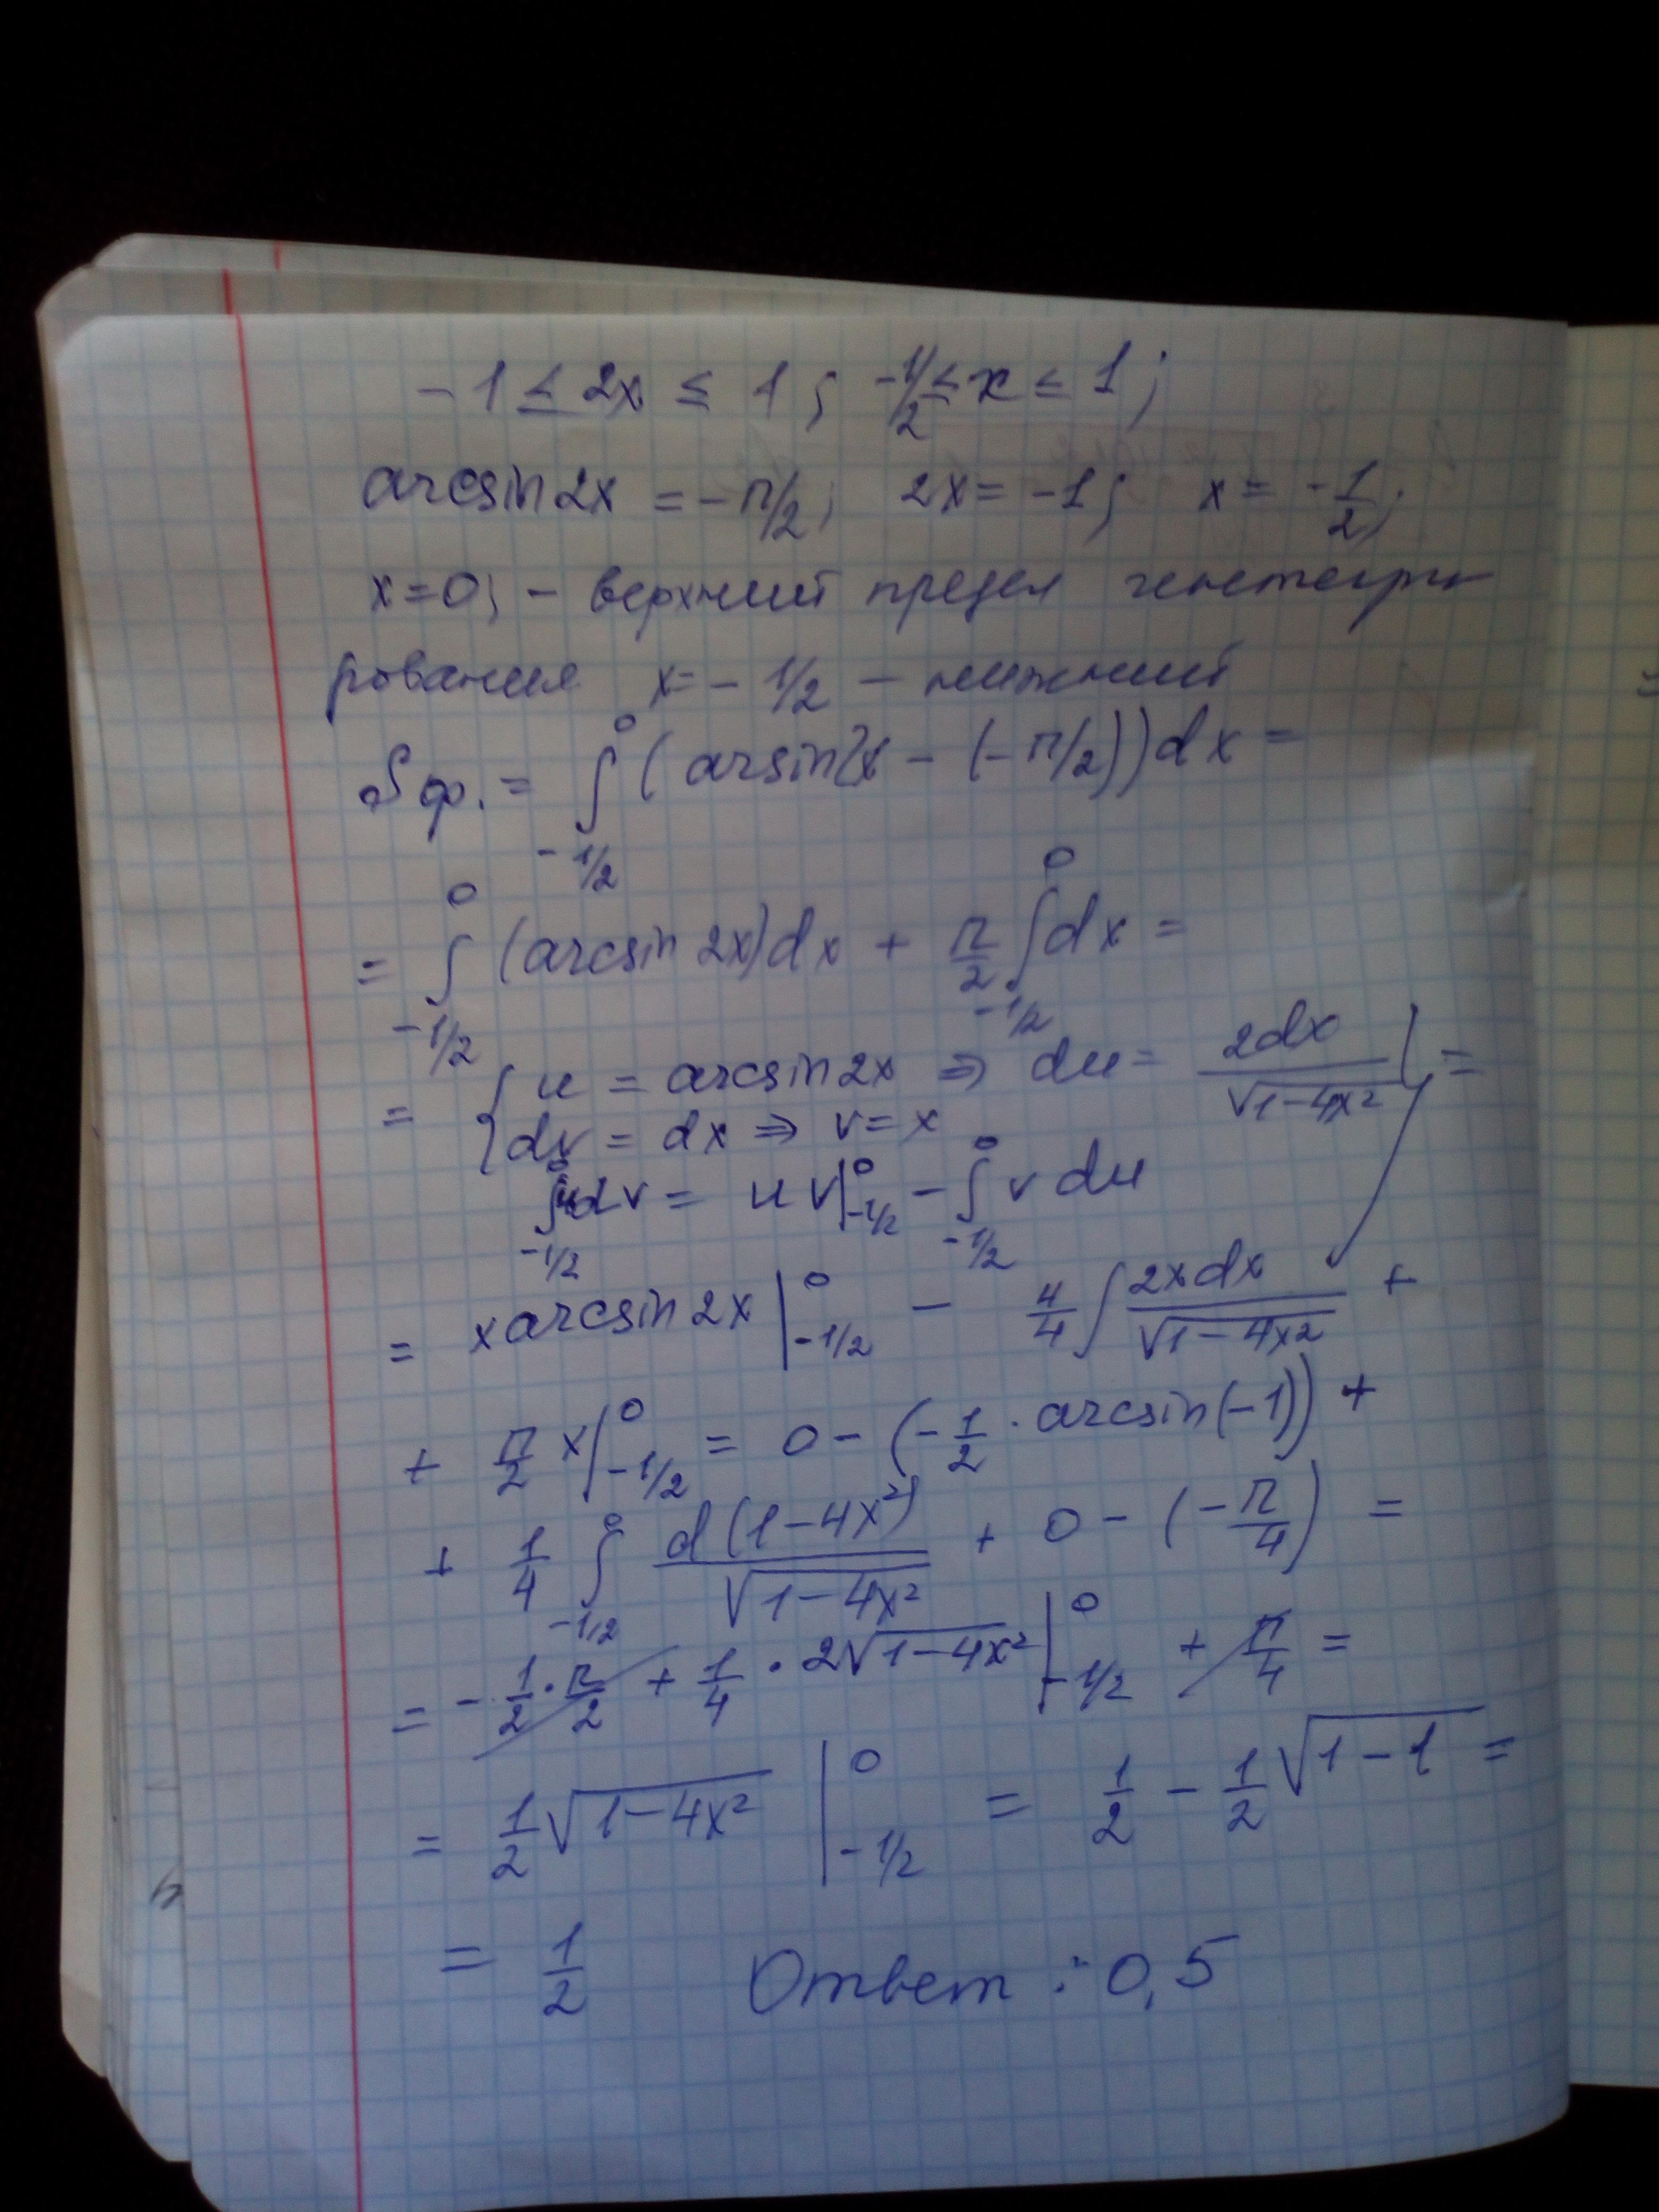 -1 ≤ 2x ≤ 1; -1/2 ≤ x ≤ 1;
arcsin2x = -π/2; 2x = -1; x = -1/2;
x=0; - верхний предел интегри-
рования x = -1/2 - нижний
Sф. = ∫_{-1/2}^{0} (arsin2x - (-π/2))dx =
= ∫_{-1/2}^{0} (arcsin 2x)dx + π/2 ∫_{-1/2}^{0} dx =
= { u = arcsin2x ⇒ du = 2dx/√(1-4x²) | =
dv = dx ⇒ v = x
∫_{-1/2}^{0} udv = uv|_{-1/2}^{0} - ∫_{-1/2}^{0} v du
= x arcsin2x |_{-1/2}^{0} - 4/4 ∫ 2xdx/√(1-4x²) +
+ π/2 x|_{-1/2}^{0} = 0 - (-1/2 · arcsin(-1)) +
+ 1/4 ∫_{-1/2}^{0} d(1-4x²)/√(1-4x²) + 0 - (-π/4) =
= -1/2 · π/2 + 1/4 · 2√(1-4x²) |_{-1/2}^{0} + π/4 =
= 1/2 √(1-4x²) |_{-1/2}^{0} = 1/2 - 1/2 √(1-1) =
= 1/2 Ответ: 0,5